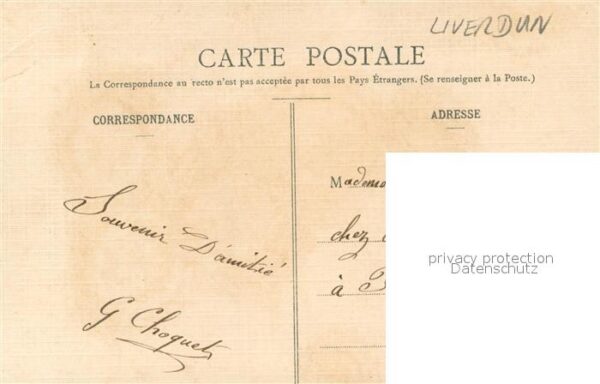 LIVERDUN
CARTE POSTALE
La Correspondance au recto n'est pas acceptée par tous les Pays Étrangers. (Se renseigner à la Poste.)
CORRESPONDANCE
ADRESSE
Souvenir D'amitié
G Choquet
Mademo
chez
à
privacy protection
Datenschutz